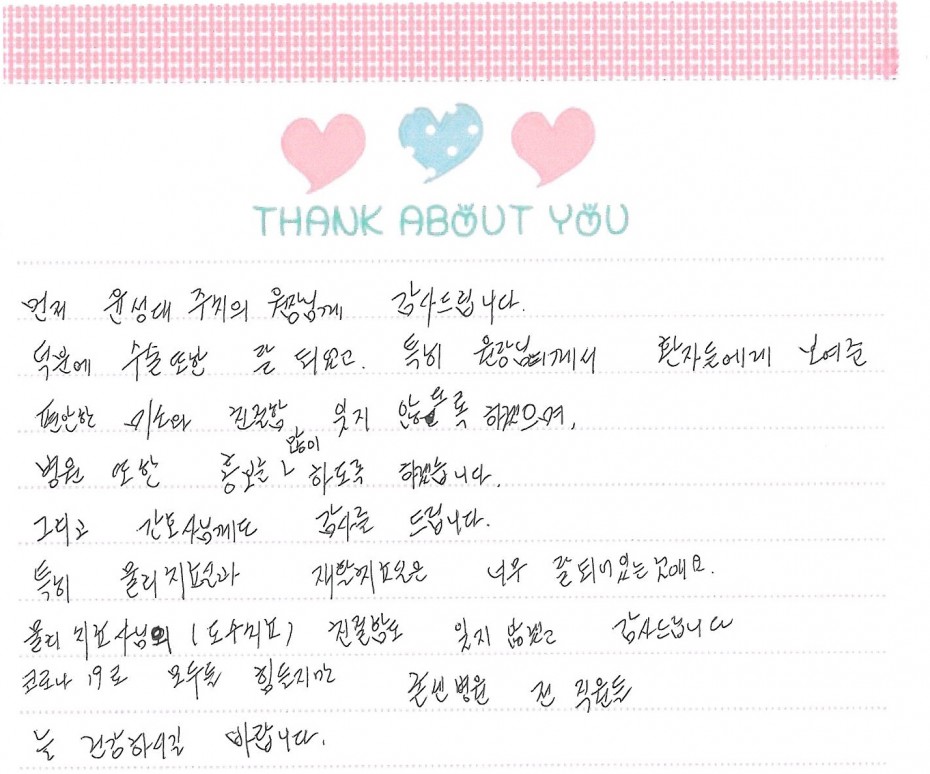 THANK ABOUT YOU
먼저 윤성대 주치의 원장님께 감사드립니다.
덕분에 수술또한 잘 되었고. 특히 원장님께서 환자들에게 보여준
편안한 미소와 친절함 잊지 않도록 하겠으며,
병원 또한 홍보를 많이 하도록 하겠습니다.
그리고 간호사님께도 감사를 드립니다.
특히 물리치료실과 재활치료실은 너무 잘되어있는것에요.
물리치료사님의 (도수치료) 친절함도 잊지 않겠고 감사드립니다
코로나 19로 모두들 힘들지만 병원 전 직원들
늘 건강하시길 바랍니다.